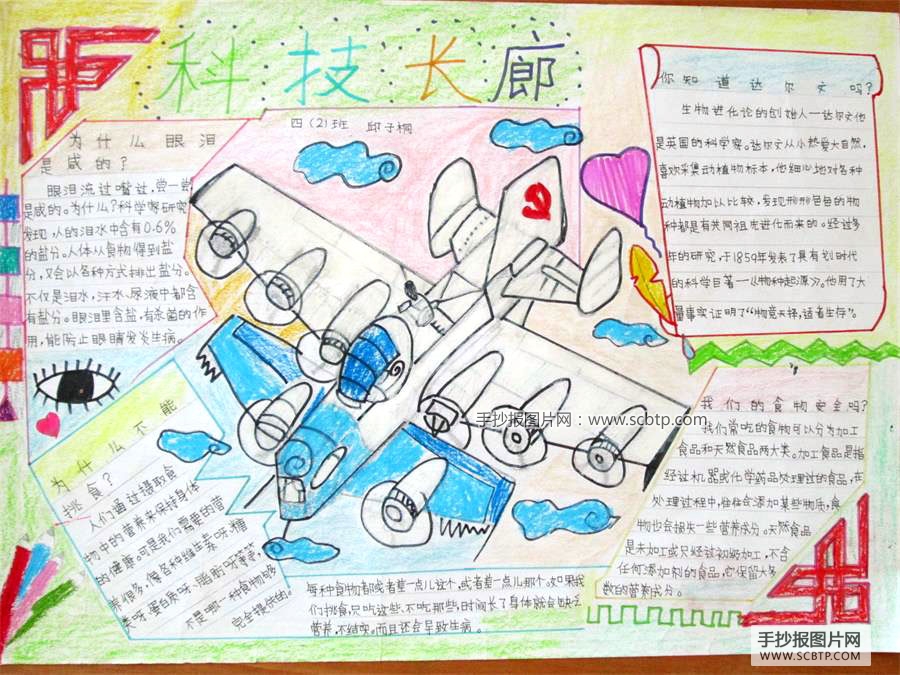 科技长廊
四(2)班 邱子桐
为什么眼泪
是咸的?
眼泪流过嘴边,尝一尝
是咸的。为什么?科学家研究
发现,人的泪水中含有0.6%
的盐分。人体从食物得到盐
分,又会以各种方式排出盐分。
不仅是泪水,汗水、尿液中都含
有盐分。眼泪里含盐,有杀菌的作
用,能防止眼睛发炎生病。
你知道达尔文吗?
生物进化论的创始人—达尔文他
是英国的科学家。达尔文从小热爱大自然,
喜欢采集动植物标本,他细心地对各种
动植物加以比较,发现形形色色的物
种都是有共同祖先进化而来的。经过多
年的研究,于1859年发表了具有划时代
的科学巨著—《物种起源》。他用了大
量事实证明了“物竞天择,适者生存”。
为什么不能
挑食?
人们通过摄取食
物中的营养来保持身体
的健康。可是我们需要的营
养很多,像各种维生素呀、糖
类呀、蛋白质呀、脂肪呀等等,
不是哪一种食物够
完全提供的。
每种食物都或者差一点儿这个,或者差一点儿那个。如果我
们挑食,只吃这些,不吃那些,时间长了身体就会缺乏
营养,不结实。而且还会导致生病。
我们的食物安全吗?
我们常吃的食物可以分为加工
食品和天然食品两大类。加工食品是指
经过机器或化学药品处理过的食品,在
处理过程中,往往会添加某些物质,食
物也会损失一些营养成分。天然食品
是未加工或只经过初级加工,不含
任何添加剂的食品,它保留大多
数的营养成分。
手抄报图片网:www.scbtp.com
手抄报图片网
WWW.SCBTP.COM